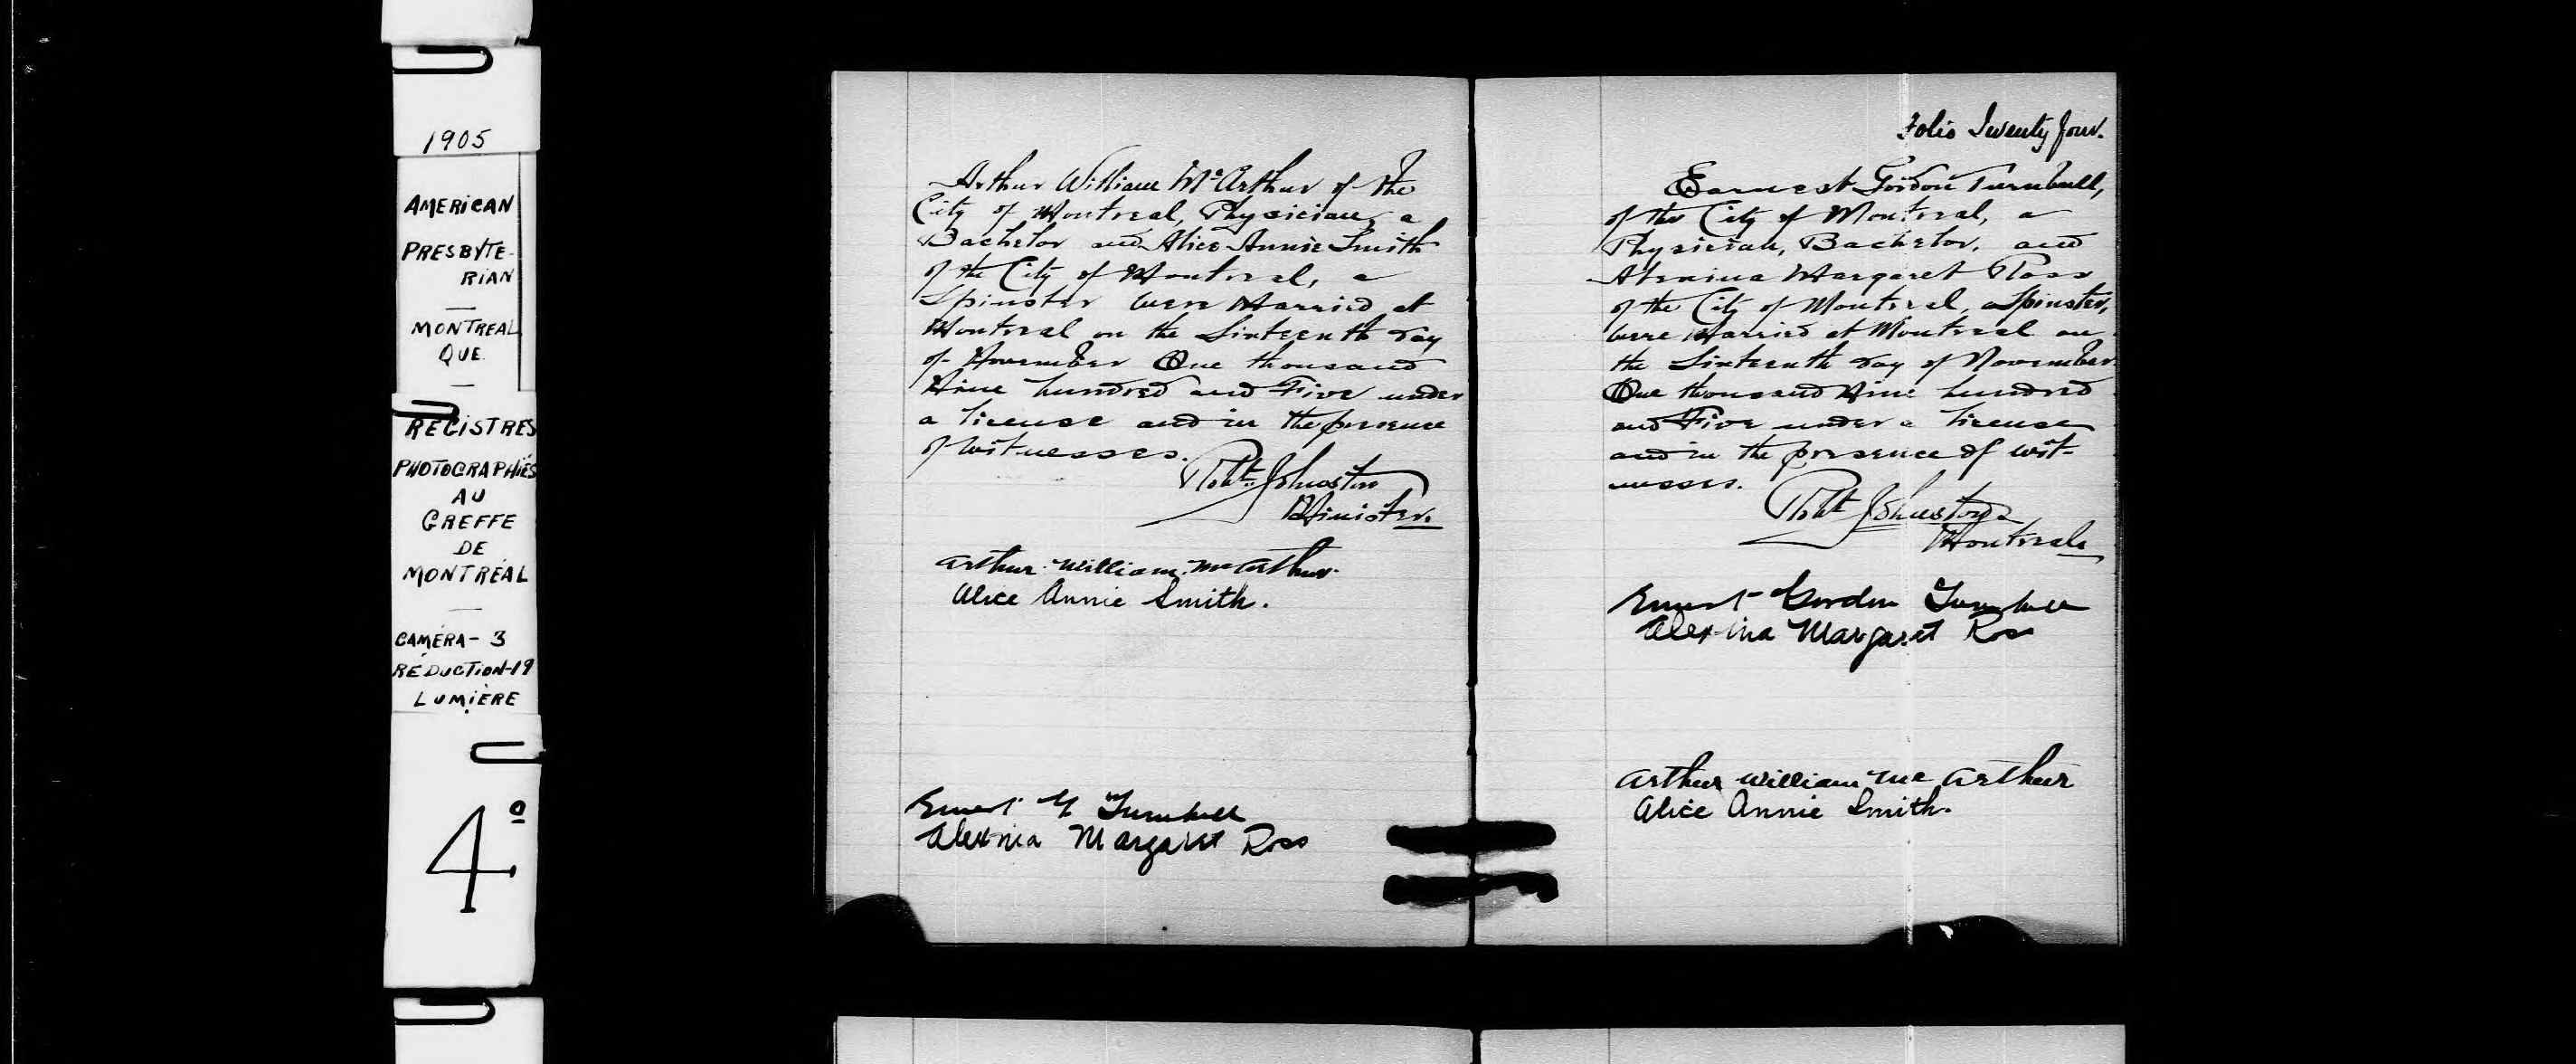 1905
AMERICAN
PRESBYTE-
RIAN
MONTREAL
QUE.
REGISTRES
PHOTOGRAPHIÉS
AU
GREFFE
DE
MONTRÉAL
CAMÉRA - 3
RÉDUCTION-19
LUMIÈRE
4º
Arthur William Mc Arthur of the
City of Montreal, Physician, a
Bachelor and Alice Annie Smith
of the City of Montreal, a
Spinster were Married at
Montreal on the Sixteenth day
of November One thousand
Nine hundred and Five under
a license and in the presence
of witnesses.
Robt. Johnston
Minister.
Arthur William McArthur.
Alice Annie Smith.
Ernest G Turnbull
Alexina Margaret Ross
Folio Twenty four.
Earnest Gordon Turnbull,
of the City of Montreal, a
Physician, Bachelor, and
Alexina Margaret Ross
of the City of Montreal, a Spinster,
were Married at Montreal on
the Sixteenth day of November
One thousand Nine hundred
and Five under a license
and in the presence of wit-
nesses.
Robt Johnston
Montreal.
Ernest Gordon Turnbull
Alexina Margaret Ross
Arthur William McArthur
Alice Annie Smith.